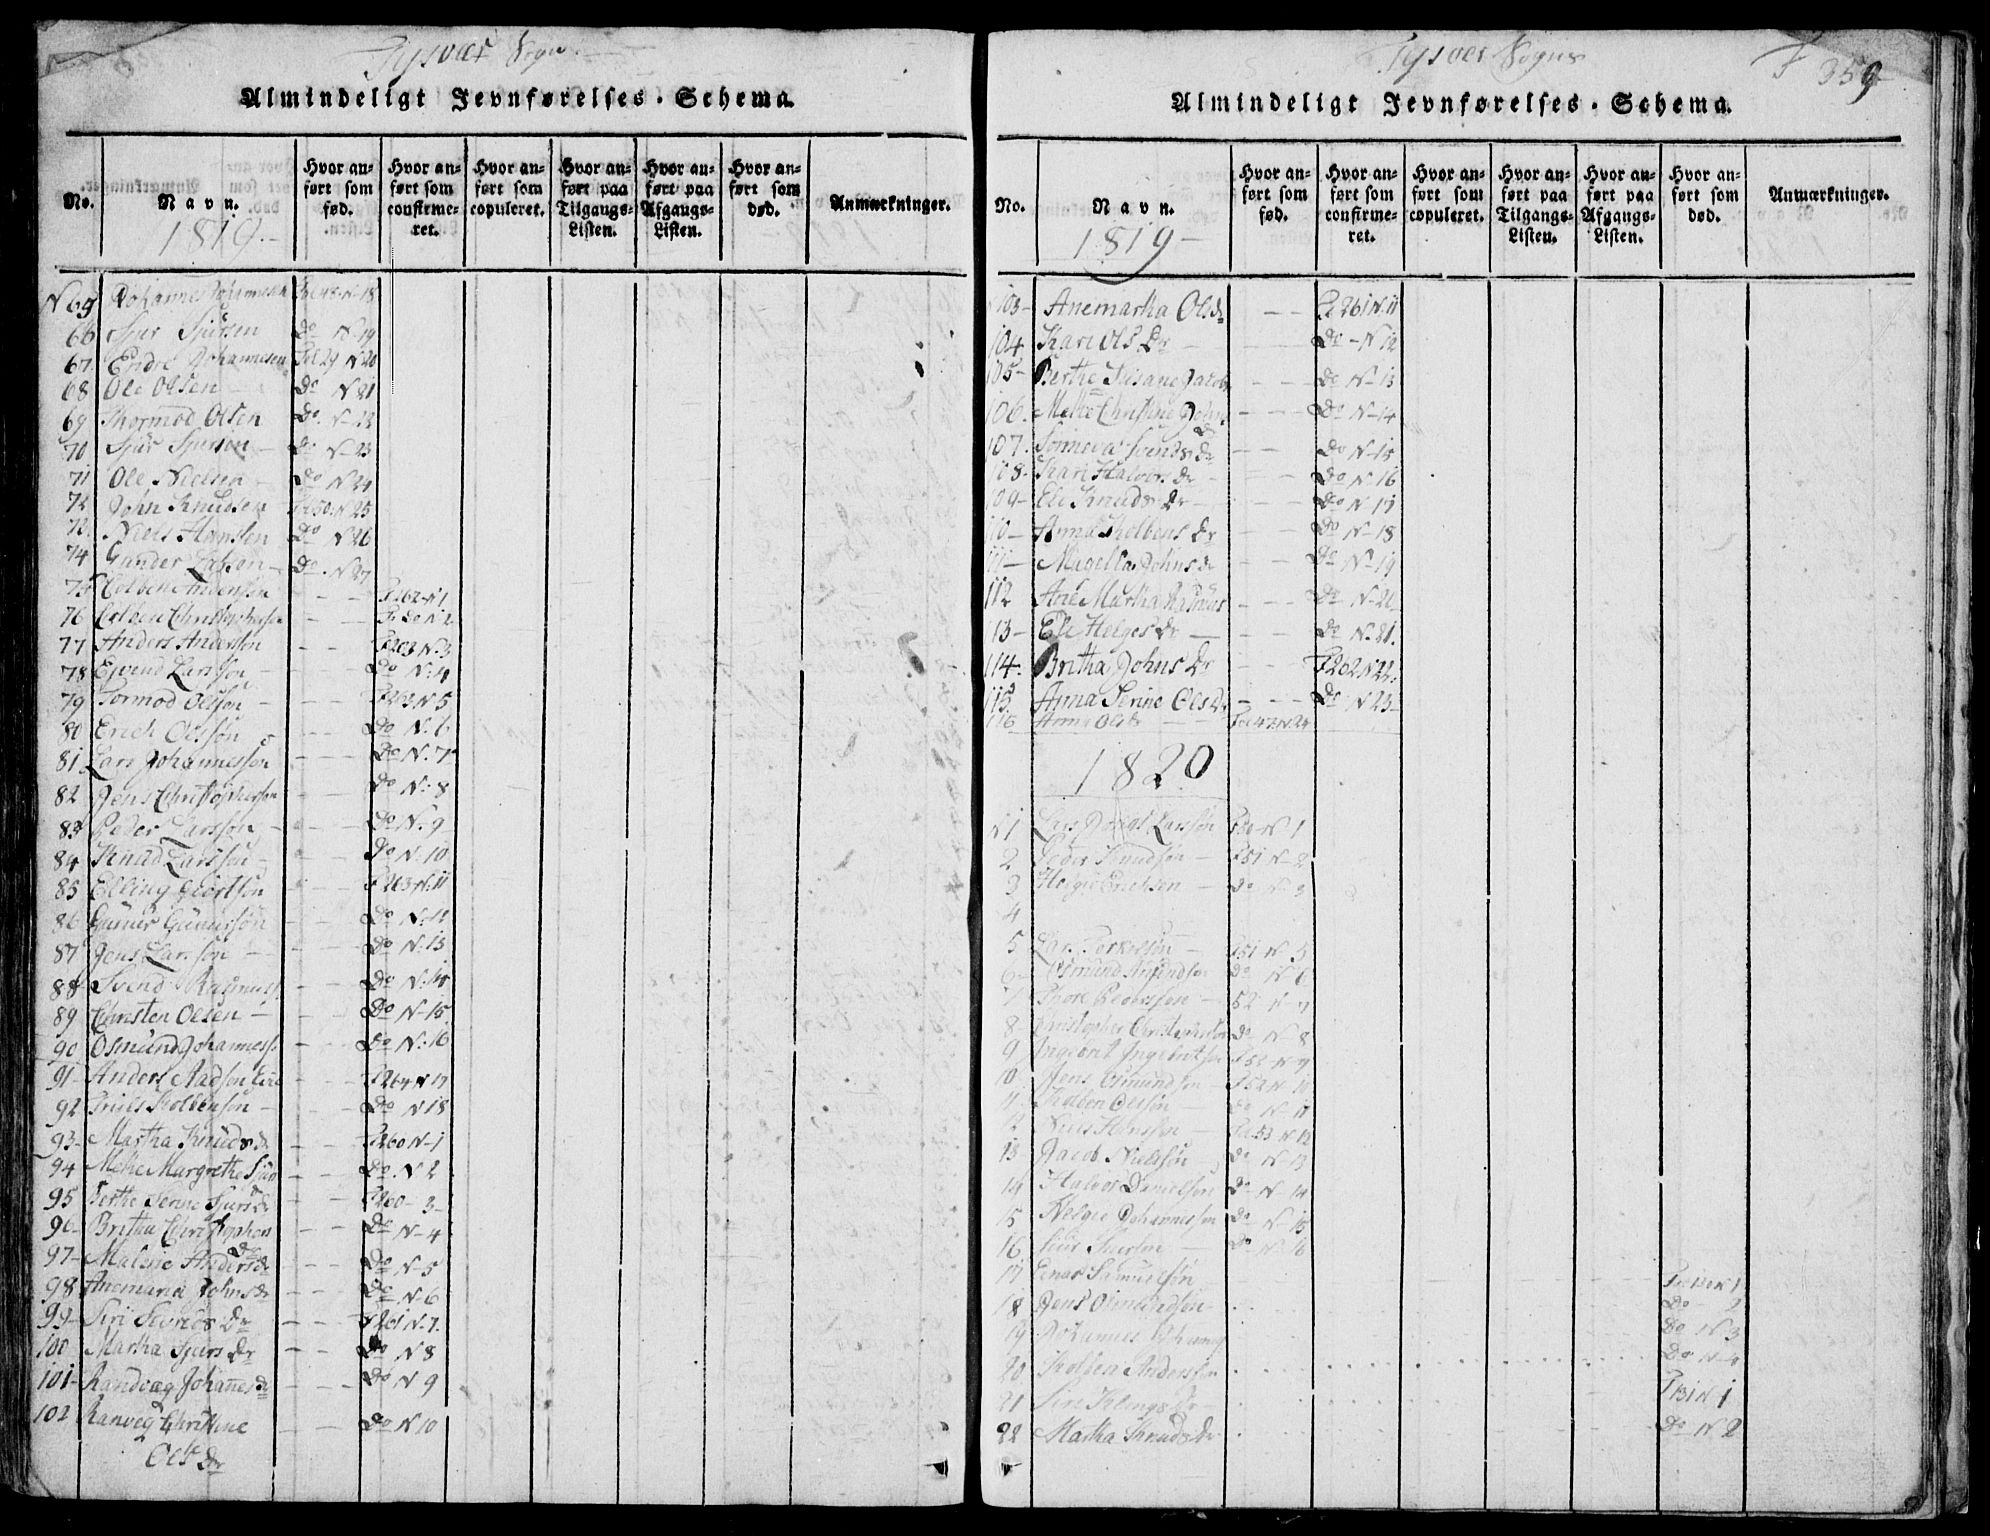 Tysvær Sogn.
Almindeligt Jevnførelses-Schema.
No.
Navn.
Hvor anført som fød.
Hvor anført som confirmeret.
Hvor anført som copuleret.
Hvor anført paa Tilgangs-Listen.
Hvor anført paa Afgangs-Listen.
Hvor anført som død.
Anmærkninger.
1819.
N 65 Johannes Johannesen Fol 48 N-18
66 Sjur Sjursen Do N-19
67 Endre Johannesen Fol 29 N 20
68 Ole Olsen Do N 21
69 Thormod Olsen Do N-22
70 Sjur Sjursen Do N-23
71 Ole Nielsen Do N 24
72 John Knudsen N 25
Niels Hansen Do N 26
74 Gunder Do. N 27
75 Colben Andersøn F 262 N 1
76 N 2
77 Anders Andersøn N. 3
78 Ejvend Larssøn Do N: 4
79 Tormod Olsøn N 5
80 Erich Olssøn Do N. 6
81 Lars Johannessøn Do N. 7
82 Jens Christophersøn Do N: 8
83 Peder Larssøn Do N. 9
84 Knud Larssøn Do N. 10
85 Elling F 263 N: 11
86 Do N: 12
87 Jens Larssøn Do N: 13
88 Svend Do N: 14
89 Christen Olsen Do N-15
90 Osmund Johanness. Do N: 16
91 Anders F 264 N 17
92 Do N 18
93 Martha Knudsdr F 260 N-1
94 Mette Margrethe Do. N 2
95 Berthe Serine Sjursdr F 260 - 3
96 Britha Christophers Dr Do N-4
97 Malene Andersdr Do N-5
98 Anemaria Johnsdr Do N-6
99 Siri Dr F 261 N-7.
100 Martha Sjurs Dr Do N 8
101 Randvæg Johanesdr Do N 9
102 Ranveg Christine Do N 10
Ols dr
Tysvær Sogns
F 359
Almindeligt Jevnførelses-Schema.
No.
Navn.
Hvor anført som fød.
Hvor anført som confirmeret.
Hvor anført som copuleret.
Hvor anført paa Tilgangs-Listen.
Hvor anført paa Afgangs-Listen.
Hvor anført som død.
Anmærkninger.
1819
103 Anemartha Olsdr F 261 N. 11
104 Kari Ols Dr Do - N 12
105 Berthe Susane Jacobs Do N-13
106 Mette Christine Johns dr Do N-14
107 Svendsdr Do N-15
108 Kari Halvors dr Do N 16
109 Eli Knuds Dr Do N 17
110 Anna Kolbens Dr Do N-18
111 Johns dr Do N-19
112 Ane Martha Do N-20
13 Eli Helges dr Do N. 21.
114 Britha Johns Dr F 262 N 22
115 Anna Serine Ols Dr Do N 23
116 Anna Olsdr N. 24
1820
N 1 Larssøn N 1
2 Peder Knudsøn F 51 N-2
3 Helgie Ericksen Do N. 3
4
5 Lars Torkelsøn F 51 N 5
6 Osmund Do N 6
7 Thore Pederssøn 52 N 7
8 Christopher Christophersøn Do N 8
9 Ingebret Ingebretsøn F 52 N 9
10 Jens Osmundsøn F 52 N 10
11 Kolben Olssøn Do N 11
12 Niels Hansson F. 53 N 12
13 Jacob Nielssøn Do N-13
14 Halvor Danielsøn Do N-14
15 Helgie Johannessøn Do N-15
16 Do N-16
17 Einar Samuelsøn N 1
18 Jens Osmundsøn Do - 2
19 Johannes Do N 3
20 Kolben Anderssøn Do N-4
21 Siri Dr F 131 N 1
22 Martha Knuds Dr Do N 2